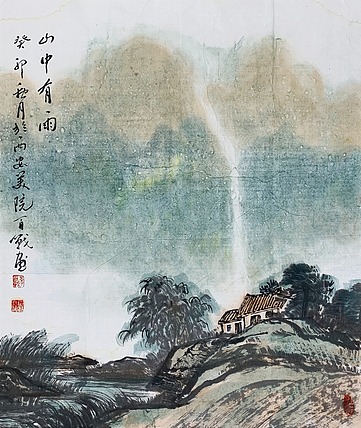 山中有雨
癸卯秋月於西安美院百战画